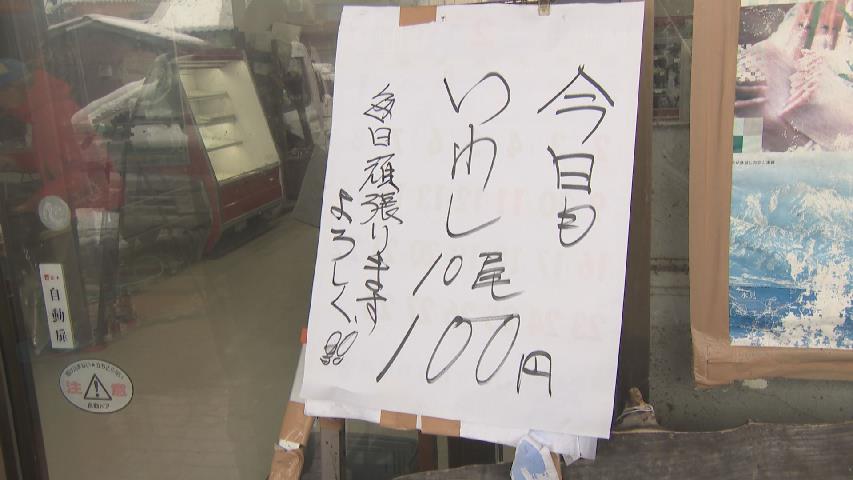 今日も
いわし
10尾
100円
毎日頑張ります
よろしく!!
自動扉
注意
自動ドア